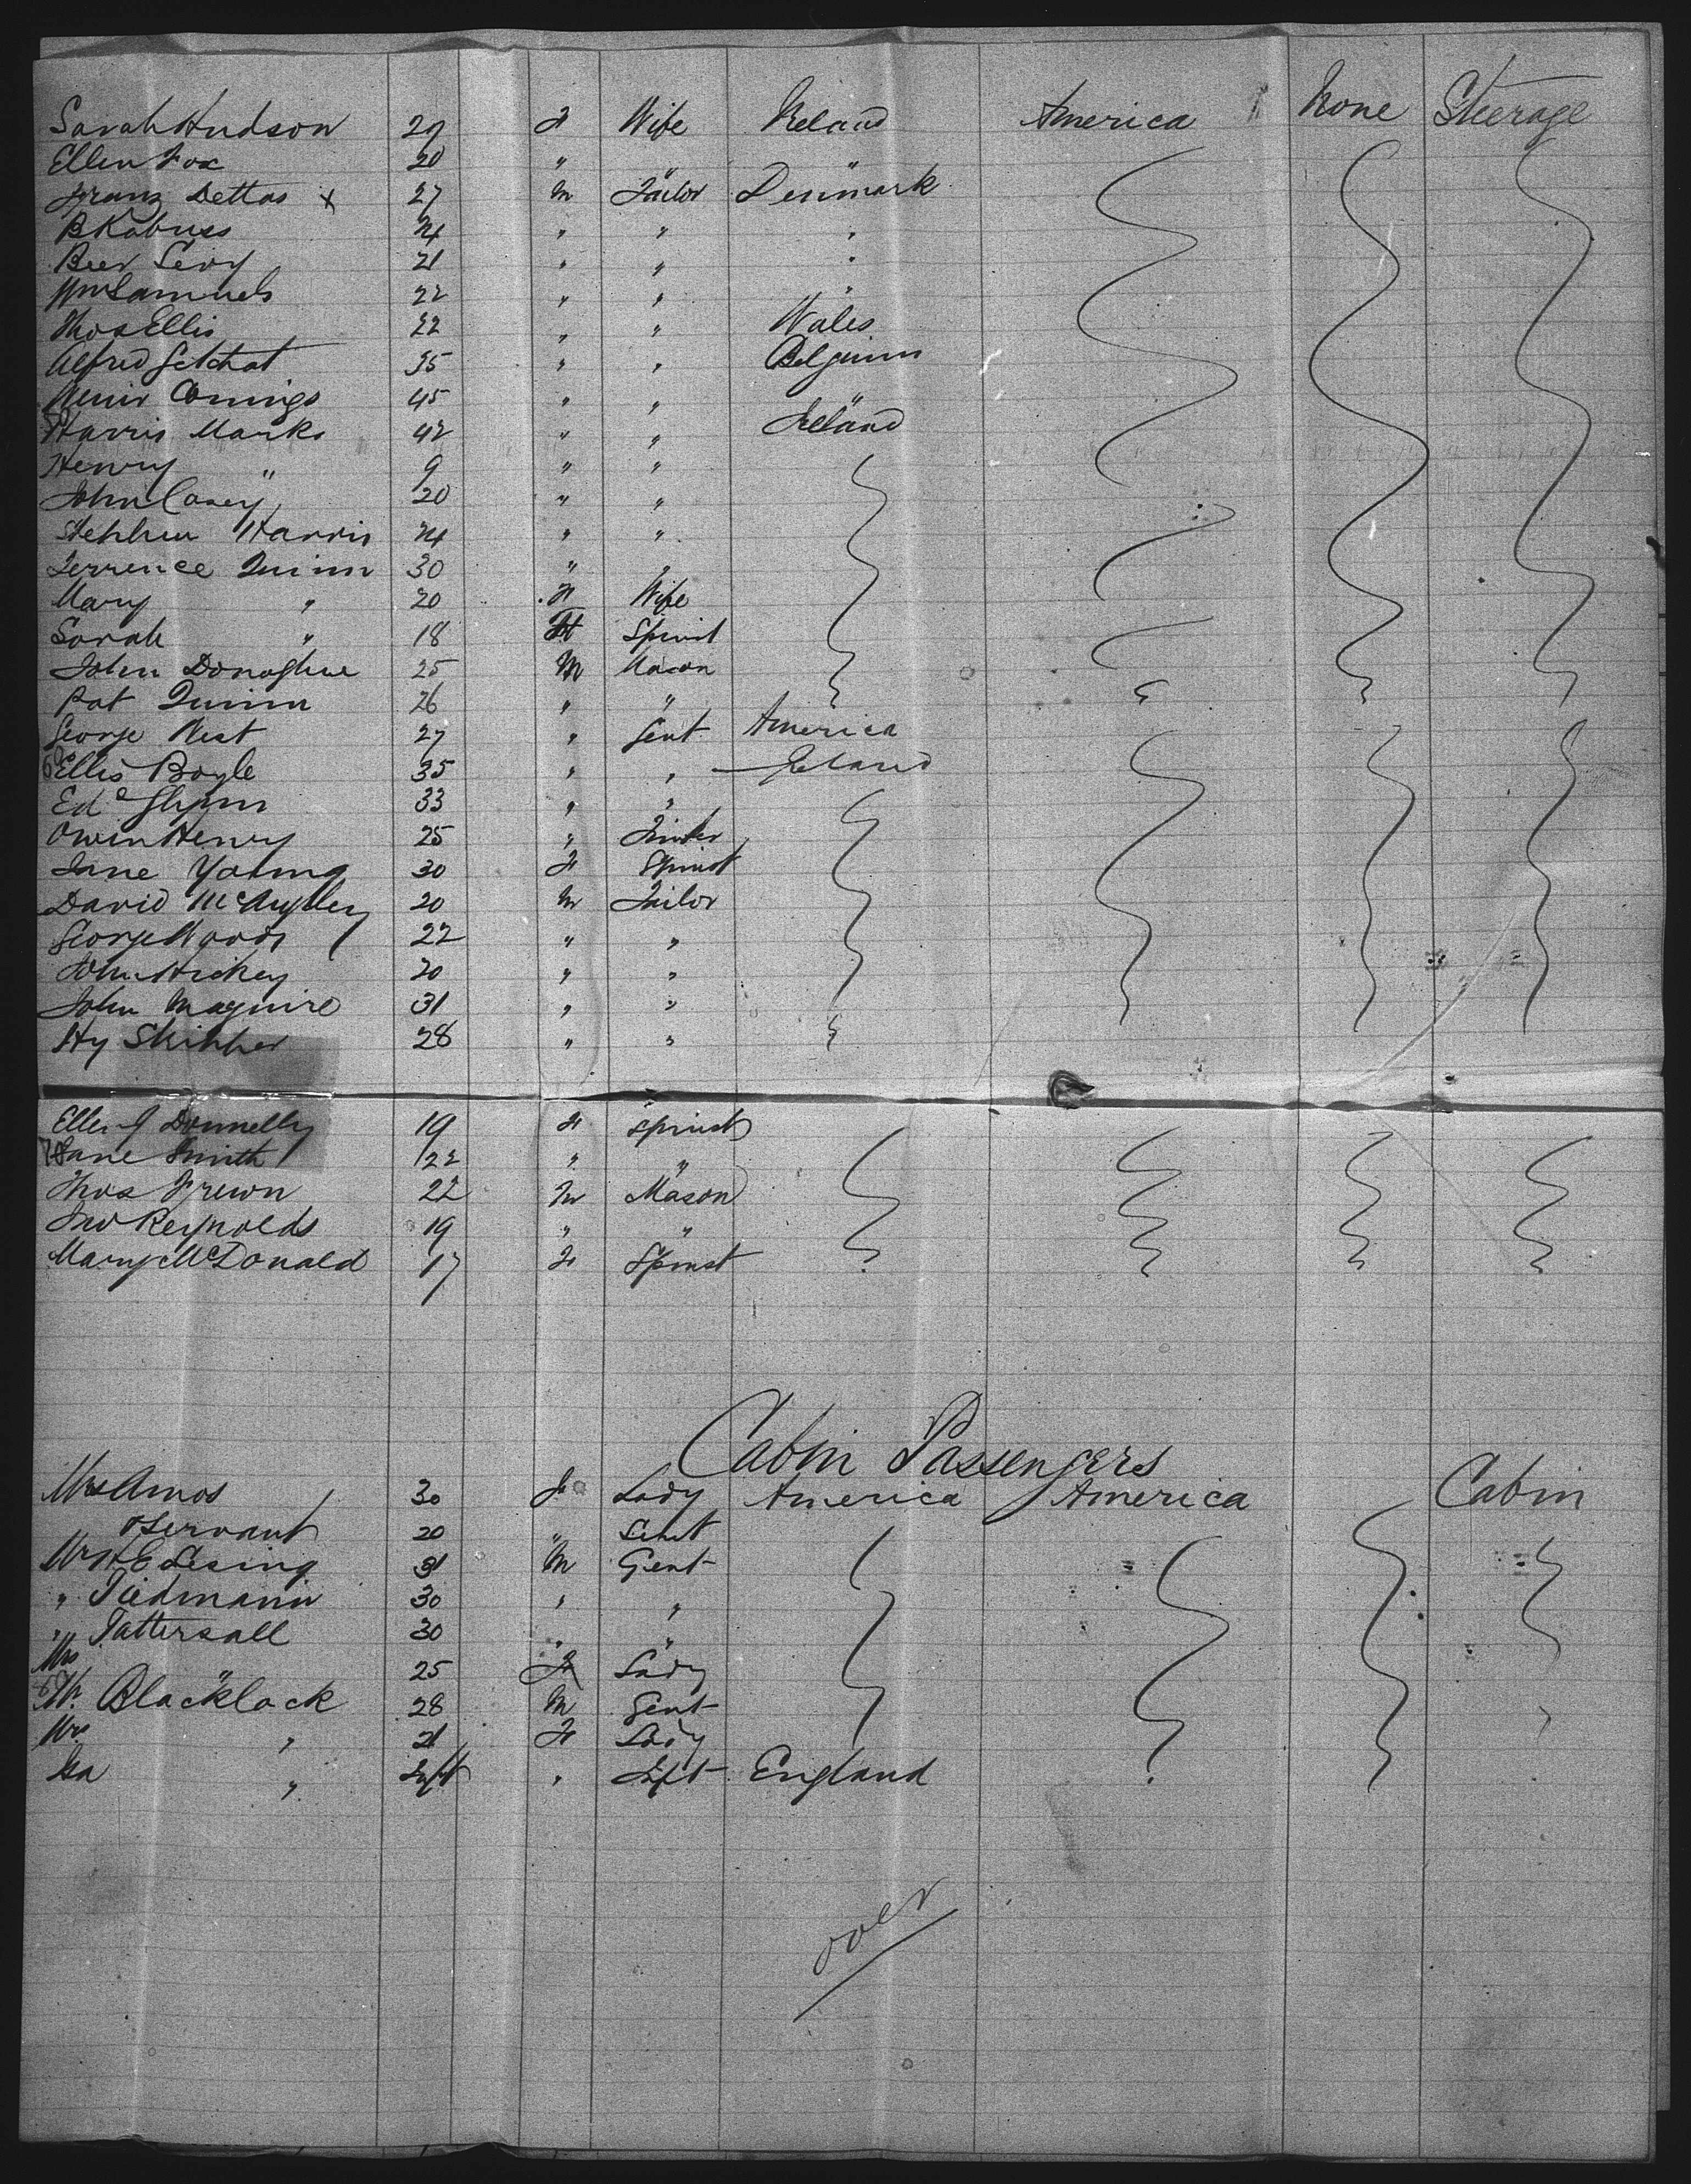 Sarah Hudson 29 F Wife Ireland America None Steerage
Ellen Fox 20 " " "
Franz Dettas x 27 M Tailor Denmark
B Kabuss 24 " " "
Beer Levy 21 " " "
Wm Samuels 22 " " "
Thos Ellis 22 " " Wales
Alfred 35 " " Belguim
45 " " "
Harris Marks 42 " " Ireland
Henry " 9 " "
John Casey 20 " "
Stephen Harris 24 " "
Terrence Quinn 30 " "
Mary " 20 F Wife
Sarah " 18 F Spinst
John Donoghue 25 M Mason
Pat Quinn 26 " "
George West 27 " Gent America
60 Ellis Boyle 35 " " Ireland
Ed Glynn 33 " "
Owin Henry 25 "
Jane Young 30 F Spinst
David McAuley 20 M Tailor
George Woods 22 " "
John Hickey 20 " "
John Maguire 31 " "
Hy Skipper 28 " "
Ellen Donnelly 19 F Spinst
70 Jane Smith 22 " "
Thos Frewn 22 M Mason
Jno Reynolds 19 " "
Mary McDonald 17 F Spinst
Cabin Passengers
Mrs Amos 30 F Lady America America Cabin
& Servant 20 " Servt
Mr H E Lesing 31 M Gent
" Tiedmann 30 " "
" Tattersall 30 " "
Mrs " 25 F Lady
Mr. Blacklock 28 M Gent
Mrs " 21 F Lady
Isa " Inft " Inft England
over